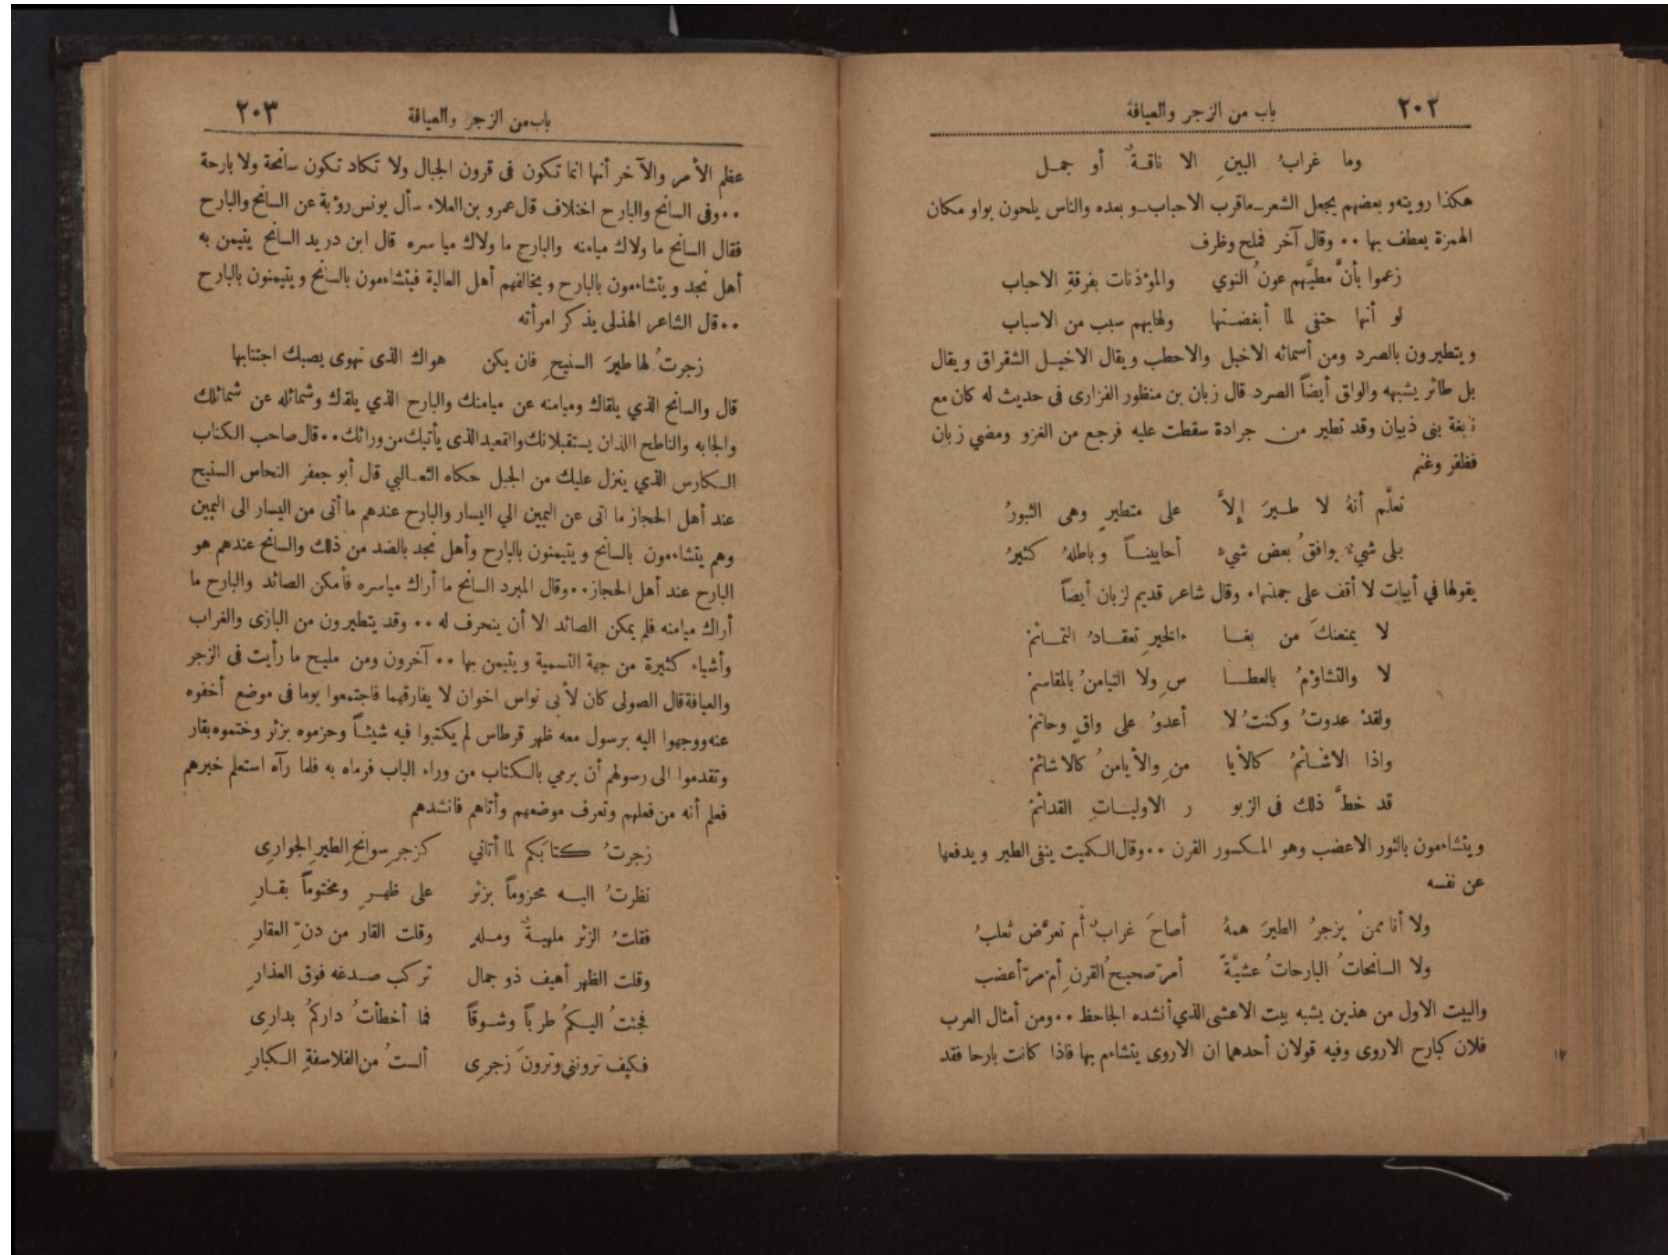 باب من الزجر والعيافة ٢٠٢
وما غرابُ البينِ الا ناقةٌ أو جمل
هكذا رويته وبعضهم يجعل الشعر ـ ماقرب الاحباب ـ وبعده والناس يلحون بواو مكان
الهمزة يعطف بها ٠٠ وقال آخر فملح وظرف
زعموا بأنَّ مطيَّهم عونُ النوي والمؤذنات بفرقةِ الاحباب
لو أنها حتفى لما أبغضتها ولهابهم سبب من الاسباب
ويتطيرون بالصرد ومن أسمائه الاخيل والاحطب ويقال الاخيل الشقراق ويقال
بل طائر يشبهه والواق أيضاً الصرد قال زبان بن منظور الفزارى فى حديث له كان مع
نابغة بنى ذبيان وقد تطير من جرادة سقطت عليه فرجع من الغزو ومضي زبان
فظفر وغنم
تعلَّم أنهُ لا طيرَ إلاَّ على متطيرٍ وهى الثبورُ
بلى شيءٌ يوافقُ بعض شيءٍ أحاييناً وباطلهُ كثيرُ
يقولها في أبيات لا أقف على جملتها٠ وقال شاعر قديم لزبان أيضاً
لا يمنعنكَ من بغا ءالخيرِ تعقادُ التمائمْ
لا والتشاؤمُ بالعطا سِ ولا التيامنُ بالمقاسمْ
ولقدْ عدوتُ وكنتُ لا أعدوُ على واقٍ وحاتمْ
واذا الاشائمُ كالأيا منِ والأيامنُ كالاشائمْ
قد خطَّ ذلك فى الزبو ر الاولياتِ القدائمْ
ويتشاءمون بالثور الاعضب وهو المكسور القرن ٠٠ وقال الكميت ينفى الطير ويدفعها
عن نفسه
ولا أنا ممنْ يزجرُ الطيرَ همهُ أصاحَ غرابٌ أم تعرَّض ثعلبُ
ولا السانحاتُ البارحاتُ عشيَّةً أمرّ صحيحُ القرنِ أم مرّ أعضب
والبيت الاول من هذين يشبه بيت الاعشى الذي أنشده الجاحظ ٠٠ ومن أمثال العرب
فلان كبارح الاروى وفيه قولان أحدهما ان الاروى يتشاءم بها فاذا كانت بارحا فقد
باب من الزجر والعيافة ٢٠٣
عظم الأمر والآخر أنها انما تكون فى قرون الجبال ولا تكاد تكون سانحة ولا بارحة
٠٠ وفى السانح والبارح اختلاف قال عمرو بن العلاء سأل يونس رؤبة عن السانح والبارح
فقال السانح ما ولاك ميامنه والبارح ما ولاك مياسره قال ابن دريد السانح يتيمن به
أهل نجد ويتشاءمون بالبارح ويخالفهم أهل العالية فيتشاءمون بالسانح ويتيمنون بالبارح
٠٠ قال الشاعر الهذلى يذكر امرأته
زجرتُ لها طيرَ السنيحِ فان يكن هواك الذى تهوى يصبك اجتنابها
قال والسانح الذي يلقاك وميامنه عن ميامنك والبارح الذي يلقاك وشمائله عن شمائلك
والجابه والناطح اللذان يستقبلانك والقعيد الذى يأتيك من ورائك ٠٠ قال صاحب الكتاب
الكارس الذي ينزل عليك من الجبل حكاه الثعالبي قال أبو جعفر النحاس السنيح
عند أهل الحجاز ما اتى عن اليمين الي اليسار والبارح عندهم ما أتى من اليسار الى اليمين
وهم يتشاءمون بالسانح ويتيمنون بالبارح وأهل نجد بالضد من ذلك والسانح عندهم هو
البارح عند أهل الحجاز ٠٠ وقال المبرد السانح ما أراك مياسره فأمكن الصائد والبارح ما
أراك ميامنه فلم يمكن الصائد الا أن ينحرف له ٠٠ وقد يتطيرون من البازى والغراب
وأشياء كثيرة من جهة التسمية ويتيمن بها ٠٠ آخرون ومن مليح ما رأيت فى الزجر
والعيافة قال الصولى كان لأبى نواس اخوان لا يفارقهما فاجتمعوا يوما فى موضع أخفوه
عنه ووجهوا اليه برسول معه ظهر قرطاس لم يكتبوا فيه شيئاً وحزموه بزثر وختموه بقار
وتقدموا الى رسولهم أن يرمي بالكتاب من وراء الباب فرماه به فلما رآه استعلم خبرهم
فعلم أنه من فعلهم وتعرف موضعهم وأتاهم فانشدهم
زجرتُ كتابكم لما أتاني كزجرِ سوانحِ الطيرِ الجوارِى
نظرتُ اليه محزوماً بزثر على ظهرٍ ومختوماً بقارِ
فقلتُ الزثر ملهيةٌ ولهو وقلت القار من دنّ العقارِ
وقلت الظهر أهيف ذو جمال تركب صدغه فوق العذارِ
فجئتُ اليكمُ طرباً وشوقاً فما أخطأتُ داركمُ بدارِى
فكيف ترونني وترونَ زجرِى ألستُ من الفلاسفةِ الكبارِ